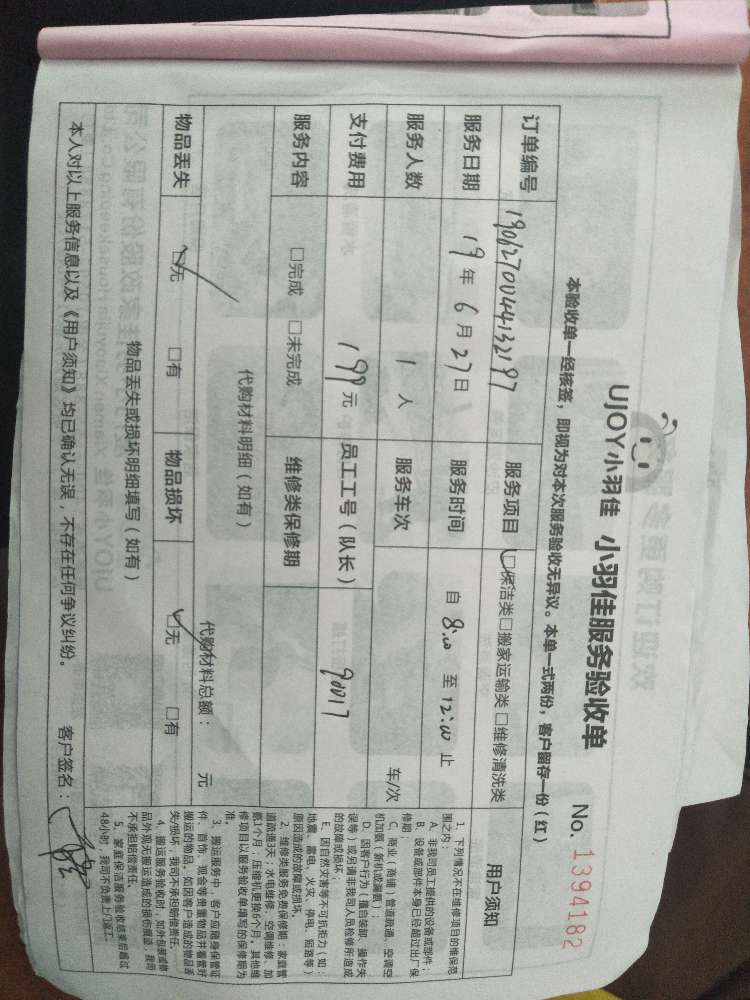 UJOY小羽佳 小羽佳服务验收单 No. 1394182
本验收单一经核签，即视为对本次服务验收无异议。本单一式两份，客户留存一份（红）
订单编号 1906270044132197 服务项目 □保洁类□搬家运输类 □维修清洗类
服务日期 19年 6月 27日 服务时间 自 8:00 至 12:00 止
服务人数 1 人 服务车次 车/次
支付费用 199元 员工工号（队长） 90017
服务内容 □完成 □未完成 维修类保修期
代购材料明细（如有） 代购材料总额： 元
物品丢失 □无 □有 物品损坏 □无 □有
物品丢失或损坏明细填写（如有）
本人对以上服务信息以及《用户须知》均已确认无误，不存在任何争议纠纷。 客户签名：
用户须知
1、下列情况不在维修项目的维保范
围之内：
A、非我司员工提供的设备或部件；
B、设备或部件本身已经超过出厂保
修期；
C、商业（商铺）管道疏通、空调空
机加氨（新机或漏氨）；
D、因客户行为（擅自装卸、操作失
误等）或另请非我司人员检修所造成
的故障或损坏；
E、因自然灾害等不可抗拒力（如：
地震、雷电、火灾、停电、短路等）
原因造成的故障或损坏。
2、维修类服务免费保修期：家庭管
道疏通3天；水电维修、空调维修、加
氨1个月，压缩机更换6个月。其他维
修项目以服务验收单填写的保修期为
准。
3、搬运服务中，客户应随身保管证
件、首饰、现金等贵重物品并看管好
搬运的物品，如因客户造成的物品丢
失/损坏，我司不承担赔偿责任。
4、搬运服务验收时，如外包装或物
品外观无搬运造成的损伤痕迹，我司
不承担赔偿责任。
5、家庭保洁服务验收结束后超过
48小时，我司不负责上门返工。